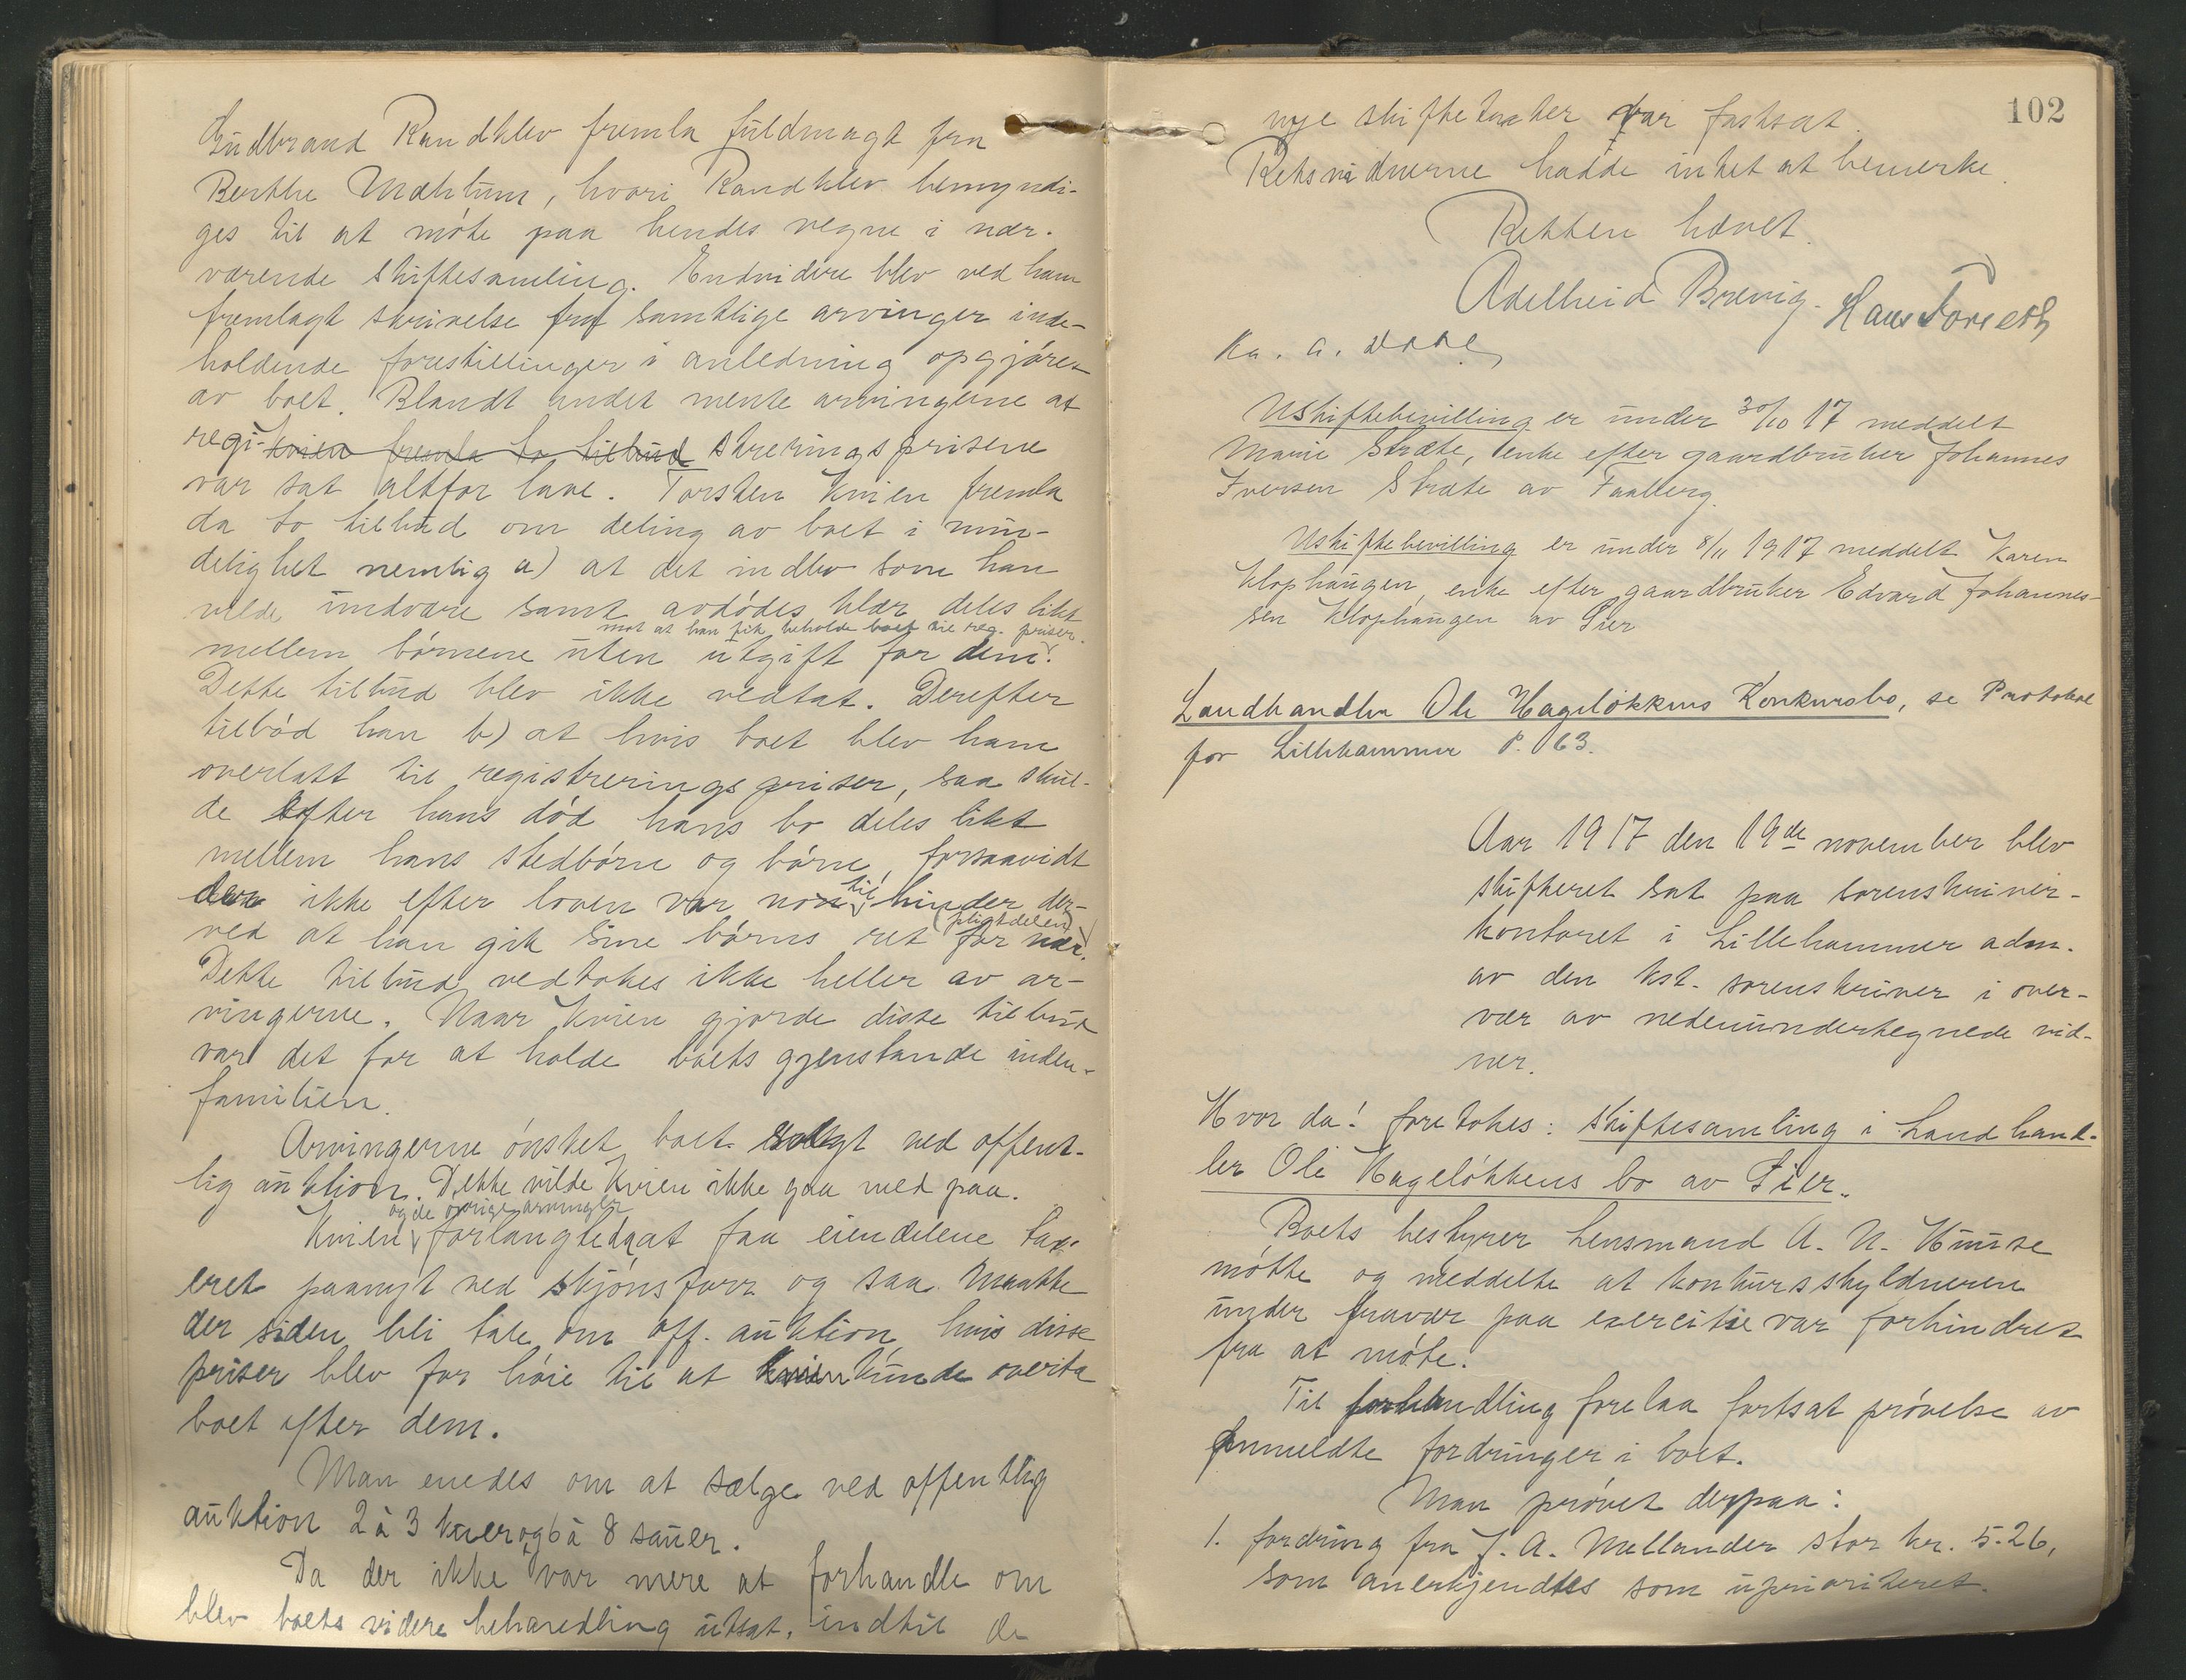 Gudbrand Randklev fremla fuldmagt fra
Berthe Mæhlum, hvori Randklev bemyndi-
ges til at møte paa hendes vegne i nær-
værende skiftesamling. Endvidere blev ved ham
fremlagt skrivelse fra samtlige arvinger inde-
holdende forestillinger i anledning opgjøret
av boet. Blandt andet mente arvingerne at
regi- Kvien fremla to tilbud streringsprisene
var sat altfor lave. Torsten Kvien fremla
da to tilbud om deling av boet i min-
delighet nemlig a) at det indbo som han
vilde undvære samt avdødes klær deles likt
mot at han fik beholde boet til reg. priser.
mellem børnene uten utgift for dem.
Dette tilbud blev ikke vedtat. Derefter
tilbød han b) at hvis boet blev ham
overlatt til registreringspriser, saa skul-
de efter hans død hans bo deles likt
mellem hans stedbørn og børn, forsaavidt
der ikke efter loven var noe til hinder der-
ved at han gik sine børns ret (pligtdelen) for nær.
Dette tilbud vedtokes ikke heller av ar-
vingerne. Naar Kvien gjorde disse tilbud
var det for at holde boets gjenstande inden-
familien.
Arvingerne ønsket boet solgt ved offent-
lig auktion. Dette vilde Kvien ikke gaa med paa.
og de øvrige arvinger
Kvien forlangte at faa eiendelene tax-
eret paanyt ved skjøns forr. og saa maatte
der siden bli tale om off. auktion hvis disse
priser blev for høie til at Kvien kunde overta
boet efter dem.
Man enedes om at sælge ved offentlig
auktion 2 à 3 kuer og 6 à 8 sauer.
Da der ikke var mere at forhandle om
blev boets videre behandling utsat, indtil de
102
nye skiftetakter var fastsat.
Retsvidnerne hadde intet at bemerke.
Retten hævet.
Adelheid Brevig. Hans Forseth
Ka. A. Dahl
Uskiftebevilling er under 30/10 17 meddelt
Marie Stræte, enke efter gaardbruker Johannes
Iversen Stræte av Faaberg.
Uskiftebevilling er under 8/11 1917 meddelt Karen
Klophaugen, enke efter gaardbruker Edvard Johannes-
sen Klophaugen av Øier
Landhandler Ole Hageløkkens Konkursbo, se Protokol
for Lillehammer P. 63.
Aar 1917 den 19de november blev
skifteret sat paa sorenskriver-
kontoret i Lillehammer adm.
av den kst. sorenskriver i over-
vær av nedenundertegnede vid-
ner.
Hvor da! foretokes: skiftesamling i Landhand-
ler Ole Hageløkkens bo av Øier.
Boets bestyrer Lensmand A. N. Huuse
møtte og meddelte at konkursskyldneren
under fravær paa exercitie var forhindret
fra at møte.
Til forhandling forelaa fortsat prøvelse av
anmeldte fordringer i boet.
Man prøvet derpaa:
1. fordring fra J. A. Mellander stor kr. 5.26,
som anerkjendtes som uprioriteret.